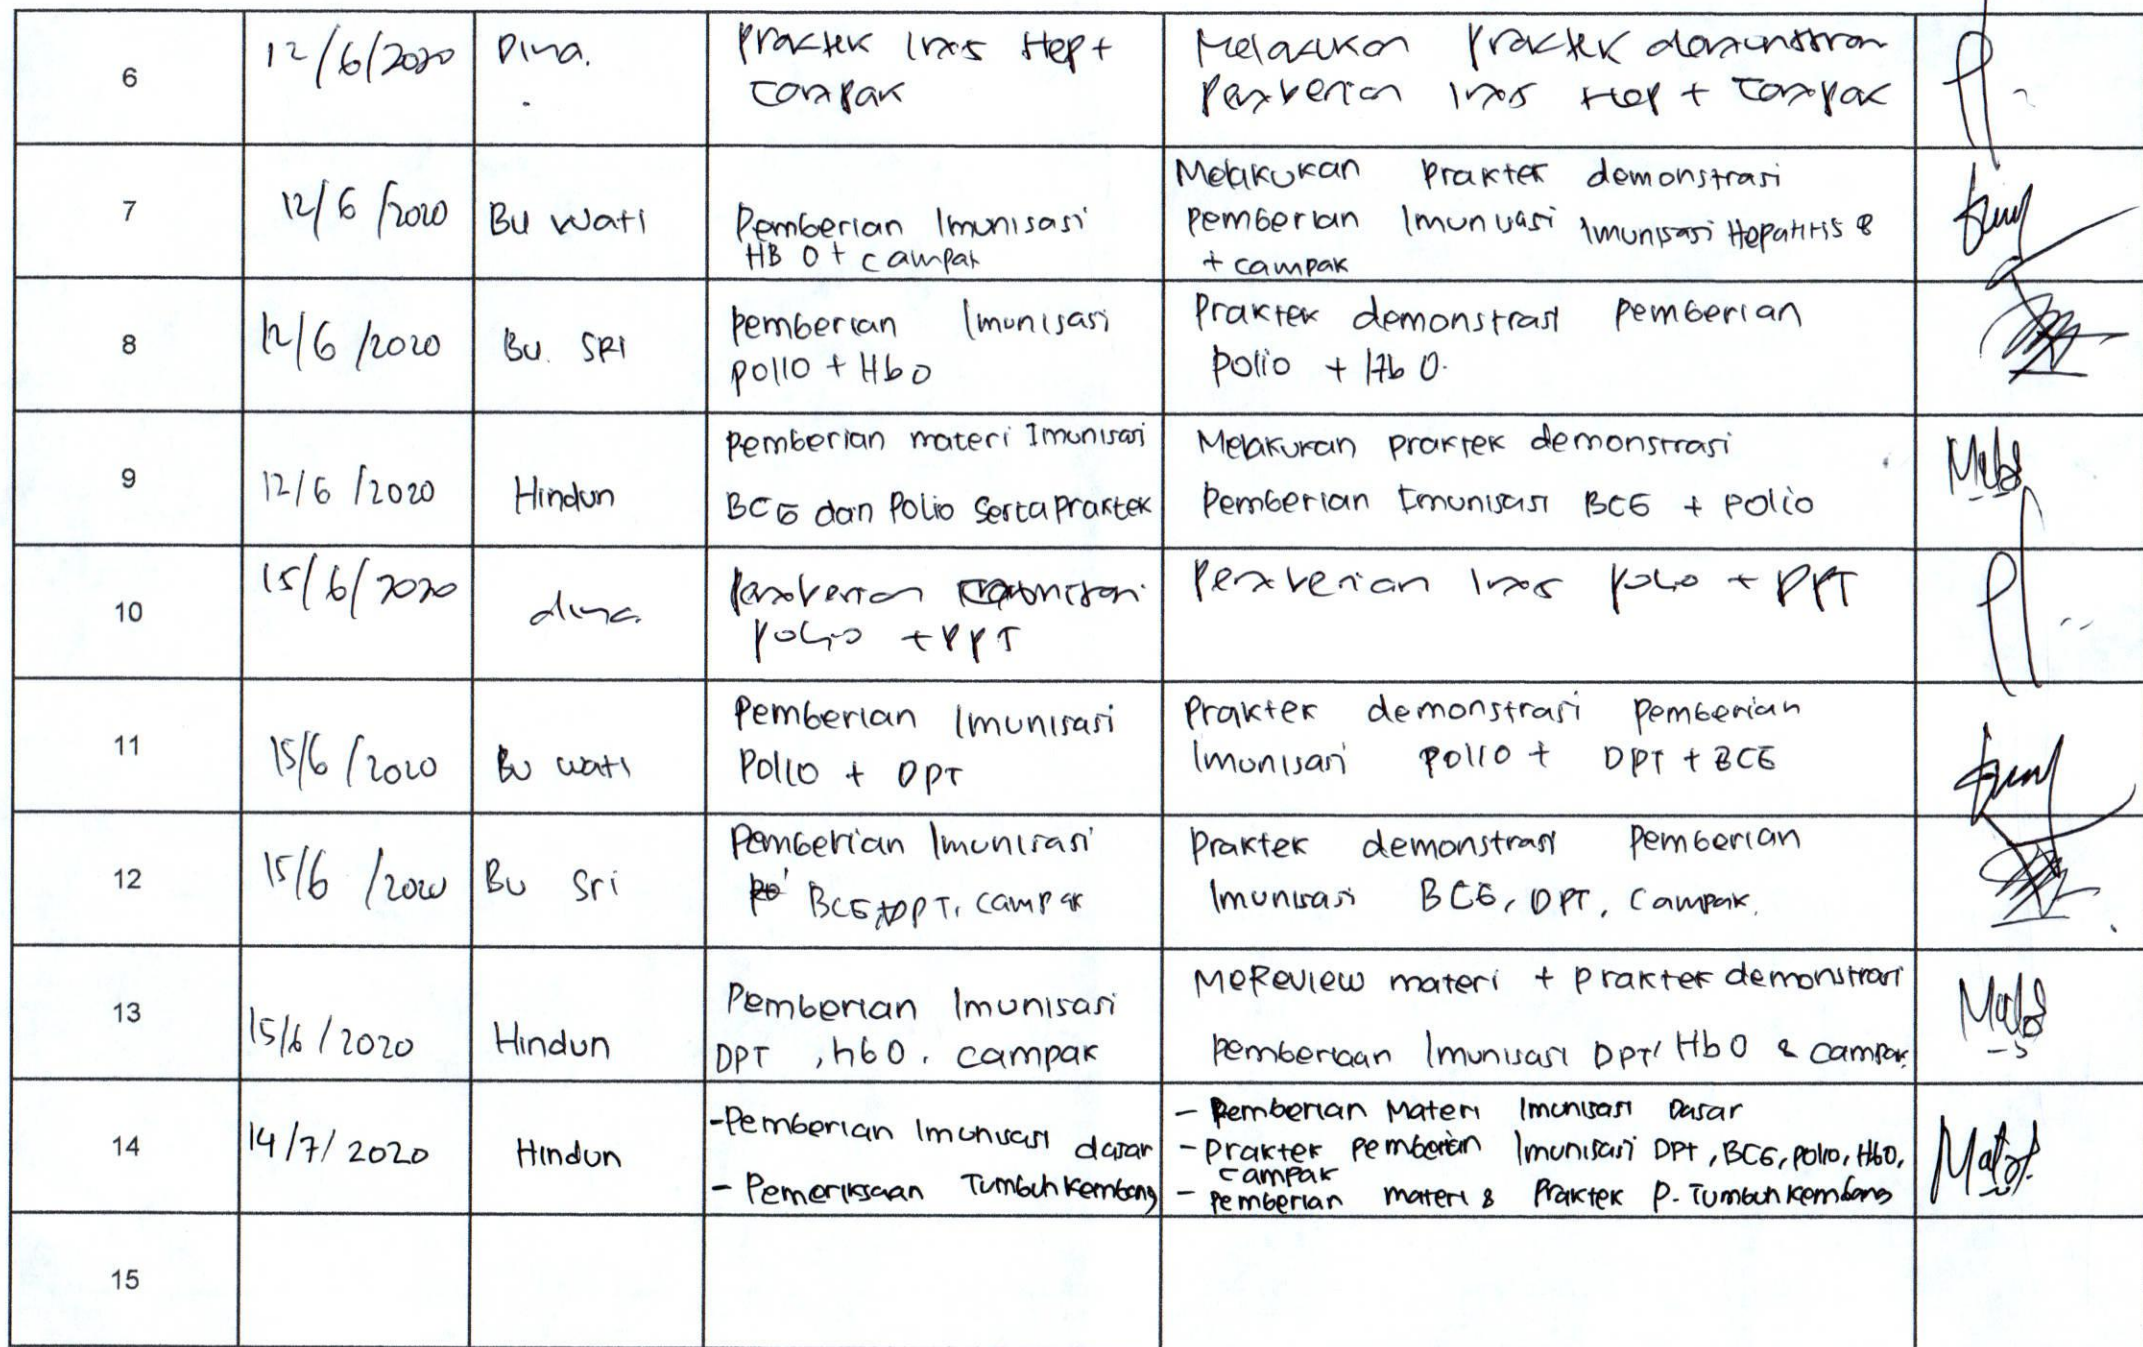 6
12/6/2020
Dina.
Praktek Imns Hep +
Campak
Melakukan Praktek demonstran
Pemberian Imns Hep + Campak
7
12/6/2020
Bu Wati
Pemberian Imunisasi
HB 0 + campak
Melakukan Praktek demonstrasi
pemberian Imunisasi Imunisasi Hepatitis B
+ campak
8
12/6/2020
Bu. SRI
pemberian Imunisasi
polio + Hb0
Praktek demonstrasi pemberian
polio + Hb 0.
9
12/6/2020
Hindun
pemberian materi Imunisasi
BCG dan Polio Serta Praktek
Melakukan praktek demonstrasi
Pemberian Imunisasi BCG + Polio
10
15/6/2020
dina.
Pemberian
polio + DPT
Pemberian Imns polio + DPT
11
15/6/2020
Bu wati
Pemberian Imunisasi
Polio + DPT
Praktek demonstrasi pemberian
Imunisasi polio + DPT + BCG
12
15/6/2020
Bu Sri
Pemberian Imunisasi
BCG, DPT, campak
Praktek demonstrasi Pemberian
Imunisasi BCG, DPT, Campak.
13
15/6/2020
Hindun
Pemberian Imunisasi
DPT, hb0, campak
MeReview materi + Praktek demonstrasi
pemberiaan Imunisasi DPT, Hb0 & campak
14
14/7/2020
Hindun
- Pemberian Imunisasi dasar
- Pemeriksaan Tumbuh Kembang
- Pemberian Materi Imunisasi Dasar
- Praktek pemberian Imunisasi DPT, BCG, polio, Hb0,
campak
- Pemberian materi & Praktek P. Tumbuh kembang
15